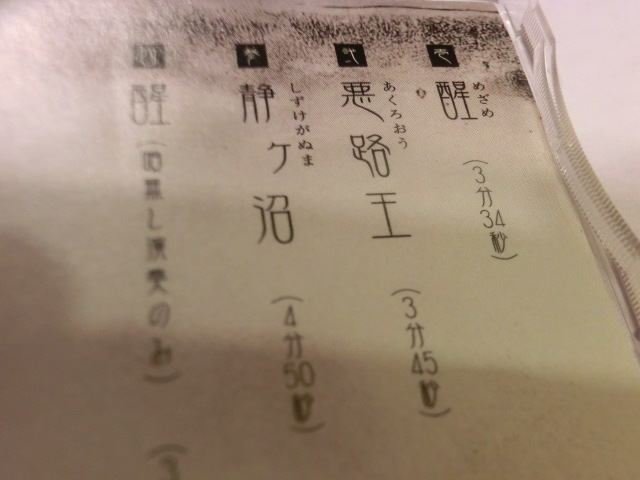 壱
めざめ
醒
(3分34秒)
弐
あくろおう
悪路王
(3分45秒)
参
しずけがぬま
静ヶ沼
(4分50秒)
醒(口暴し演奏のみ)